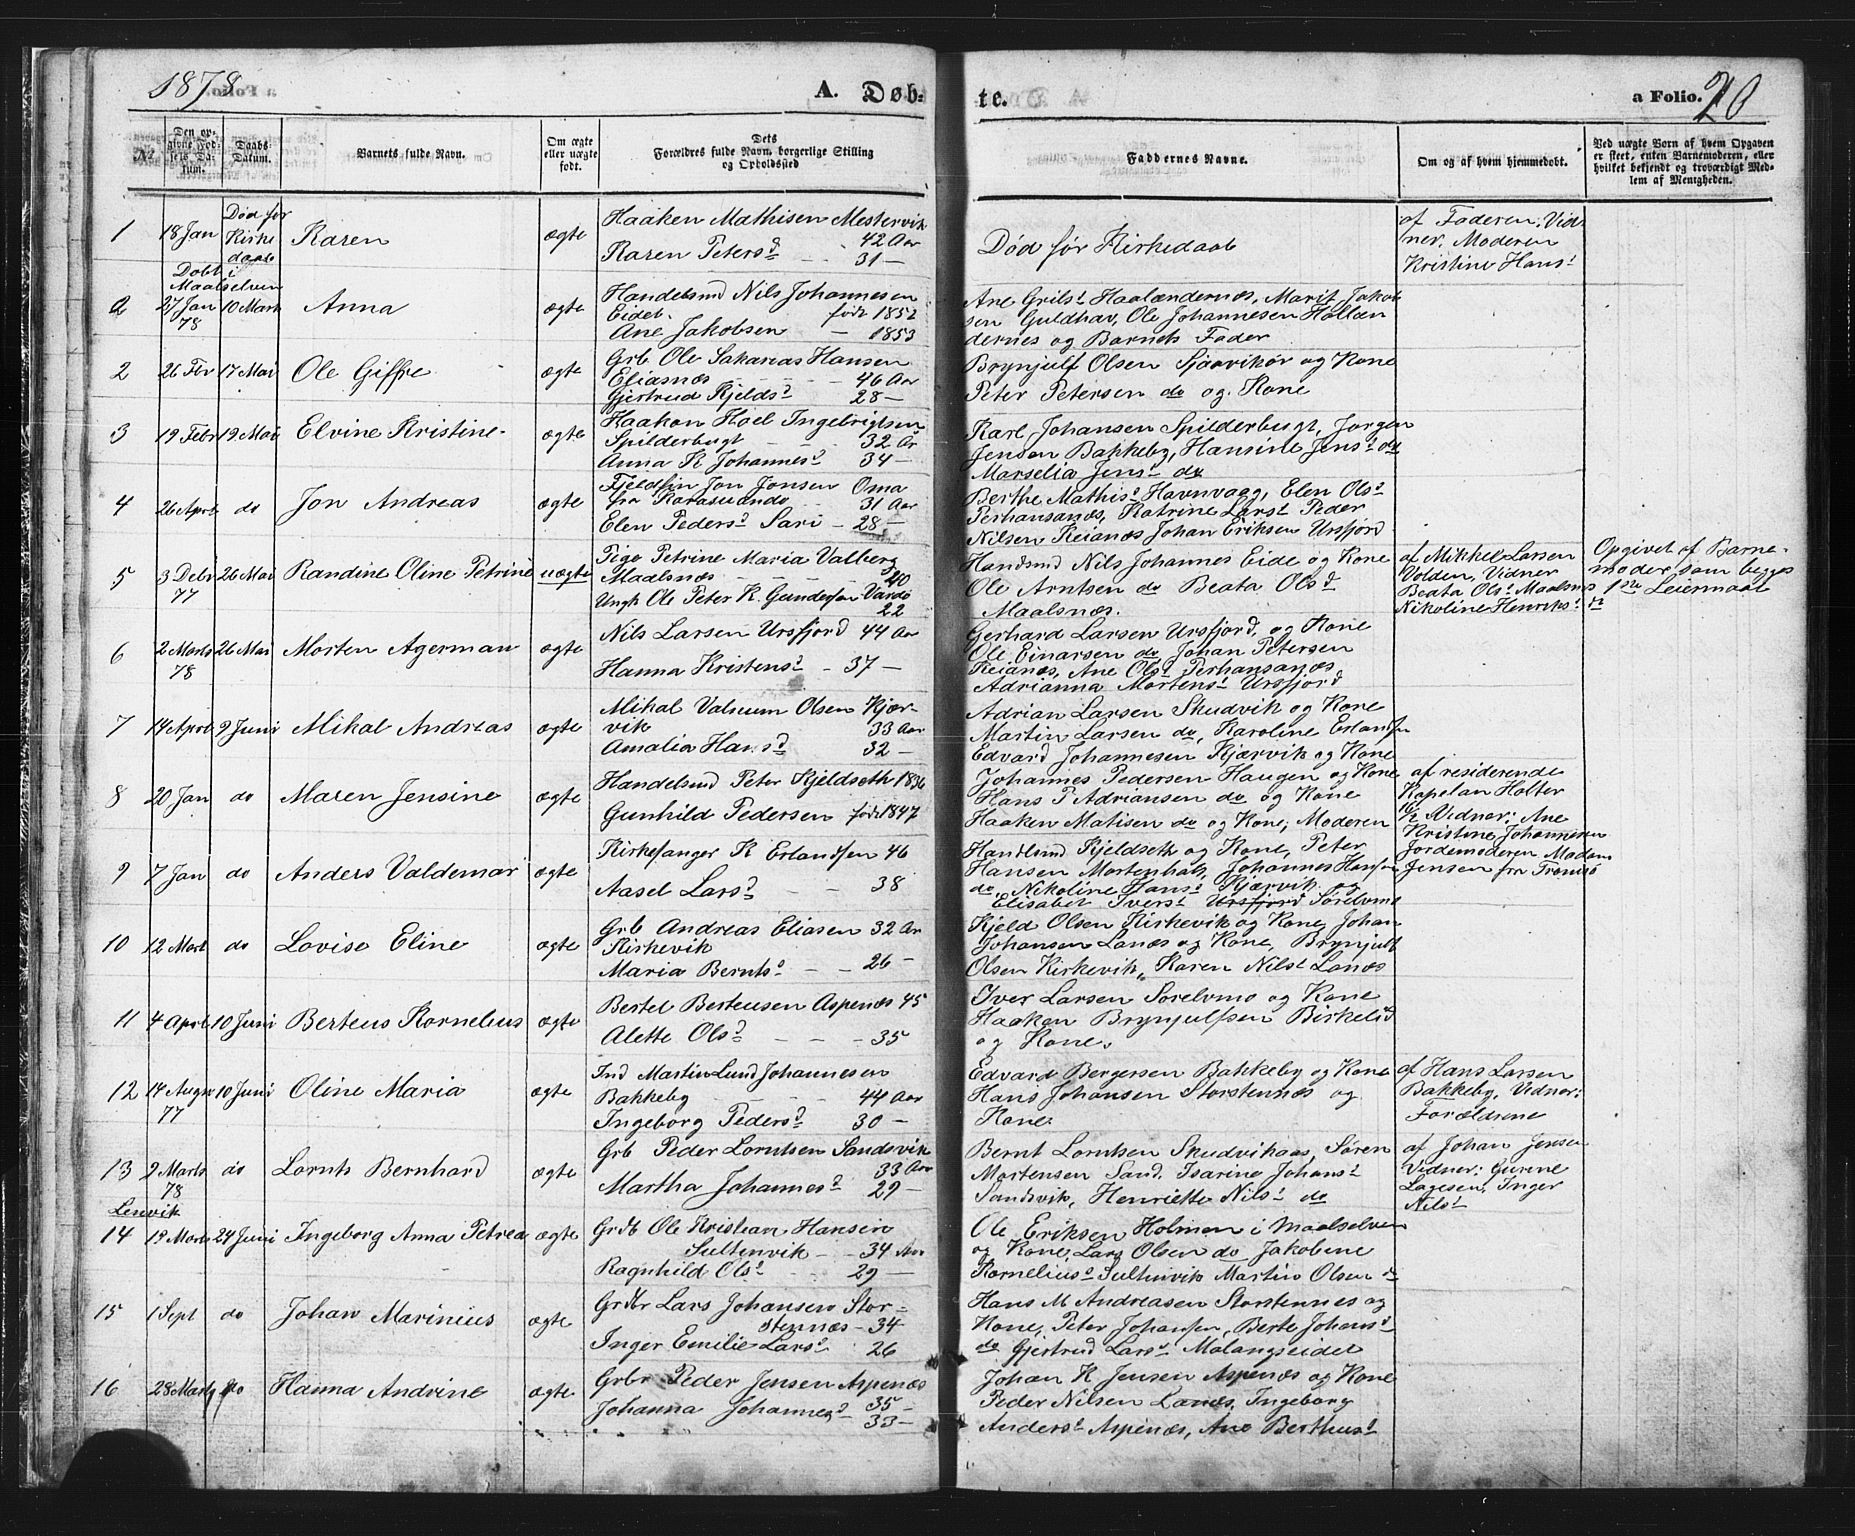 1878
A. Døb-
te.
a Folio. 20
№
Den op-
givne Fød-
sels Da-
tum.
Daabs
Datum.
Barnets fulde Navn.
Om ægte
eller uægte
født.
Dets
Forældres fulde Navn, borgerlige Stilling
og Opholdssted
Faddernes Navne.
Om og af hvem hjemmedøbt.
Ved uægte Børn af hvem Opgaven
er skeet, enten Barnemoderen, eller
hvilket bekjendt og troværdigt Med-
lem af Menigheden.
1 18 Jan Død før Kirke daab Karen ægte
Haaken Mathisen Mestervik
42 Aar
Karen Petersd - - 31 -
Død før Kirkedaab
af Faderen, Vid-
ner, Moderen
Kristine Hansd
Døbt i
Maalselven
2 27 Jan 78 10 Marts Anna ægte
Handelsmd Nils Johannesen
Eidet. født 1852
Ane Jakobsen - 1853
Ane Grilsd Haalændernæs, Marit Jakob
sen Guldhav, Ole Johannesen Hollæn
dernes og Barnets Fader
2 26 Feb 17 Mai Ole Giffre ægte
Grb Ole Sakarias Hansen
Eliasnæs - - 46 Aar
Gjertrud Kjeldsd 28 -
Brynjulf Olsen Sjaavikør og Kone
Peter Petersen do og Kone
3 19 Febr 19 Mai Elvine Kristine ægte
Haakon Hoel Ingebrigtsen
Spilderbugt - - 32 Ar
Anna K Johannesd 34 -
Karl Johansen Spilderbugt, Jørgen
Jensen Bakkeby, Hansine Jensd do
Marselia Jensd do
4 26 April do Jon Andreas ægte
Fjeldfin Jon Jonsen Oma
fra Karasuando - 31 Aar
Elen Pedersd Sari - 28 -
Berthe Mathisd Havnvaag, Elen Olsd
Perhansanæs, Katrine Larsd Peder
Nilsen Reianæs Johan Eriksen Ursfjord
5 3 Debr 77 26 Mai Randine Oline Petrine uægte
Pige Petrine Maria Valberg
Maalsnæs - - - 20
Ungk Ole Peter K. Gundersen Vardø
22
Handsmd Nils Johannes Eide og Kone
Ole Arntsen do Beata Olsd
Maalsnæs.
af Mikkel Larsen
Volden, Vidner
Beata Olsd Maalsnæs
Nikoline Henriksd do
Opgivet af Barne-
moder som begges
1ste Leiermaal
6 2 Marts 78 26 Mai Morten Agerman ægte
Nils Larsen Ursfjord 44 Aar
Hanna Kristensd - 37 -
Gerhard Larsen Ursfjord, og Kone
Ole Einarsen do Johan Petersen
Reianæs, Ane Olsd Perhansanæs
Adrianna Mortensd Ursfjord
7 14 April 9 Juni Mikal Andreas ægte
Mikal Valsum Olsen Kjær-
vik 33 Aar
Amalia Hansd 32 -
Adrian Larsen Skudvik og Kone
Martin Larsen do, Karoline Erlandsen
Edvard Johannesen Kjærvik og Kone
8 20 Jan do Maren Jensine ægte
Handelsmd Peter Kjeldseth 1836
Gunhild Pedersen født 1847
Johannes Pedersen Haugen og Kone
Hans P Adriansen do og Kone
Haaken Matisen do og Kone, Moderen
af residerende
Kapelan Holter
16/2 Vidner: Ane
Kristine Johannesen
Jordemoderen Madam
Jensen fra Tromsø
9 7 Jan do Anders Valdemar ægte
Kirkesanger K Erlandsen 46
Aasel Larsd - - 38
Handlsmd Kjeldseth og Kone, Peter
Hansen Mortenhals, Johannes Hansen
do, Nikoline Hansd Kjærvik og
Elisabet Iversd Ursfjord Sørelvmo
10 12 Mart do Lovise Eline ægte
Grb Andreas Eliasen 32 Ar
Kirkevik
Maria Berntsd - - 26 -
Kjeld Olsen Kirkevik og Kone Johan
Johansen Lanæs og Kone, Brynjulf
Olsen Kirkevik, Karen Nilsd Lanæs
11 4 April 10 Juni Berteus Kornelius ægte
Bertel Berteusen Aspenæs 45
Alette Olsd - - - 35
Iver Larsen Sørelvmo og Kone
Haaken Brynjulfsen Birkelid
og Kone.
12 14 Augu 77 10 Juni Oline Maria ægte
Ind Martin Lund Johannesen
Bakkeby - - - 44 Aar
Ingeborg Pedersd 30 -
Edvard Bergersen Bakkeby og Kone
Hans Johansen Storstennæs og
Kone.
af Hans Larsen
Bakkeby, Vidner:
Forældrene
13 2 Marts 78 do Lornts Bernhard ægte
Grb Peder Lorntsen Sandsvik
33 Aar
Martha Johannesd 29 -
Bernt Lorntsen Skudvikaas, Søren
Mortensen Sand, Isarine Johansd
Sandsvik, Henriette Nilsd do
af Johan Jensen
Vidner: Gurine
Lagesen, Inger
Nilsd
Lenvik
14 19 Marts 24 Juni Ingeborg Anna Petrea ægte
Grdb Ole Kristian Hansen
Sultenvik - - 34 Aar
Ragnhild Olsd - - 29 -
Ole Eriksen Holmen i Maalselven
og Kone, Lars Olsen do Jakobine
Korneliusd Sultinvik Martin Olsen do
15 1 Sept do Johan Marinius ægte
Grdbr Lars Johansen Stor-
stennæs - 34
Inger Emilie Larsd 26
Hans M Andreasen Storstennes og
Kone, Peter Johansen, Berte Johansd
do Gjertrud Larsd Malangseidet
16 28 Marts do Hanna Andrine ægte
Grbr Peder Jensen Aspenæs
35 -
Johanna Johannesd - 33 -
Johan K Jensen Aspenæs og Kone
Peder Nilsen Lanæs, Ingeborg
Andersd Aspenæs, Ane Berthusd